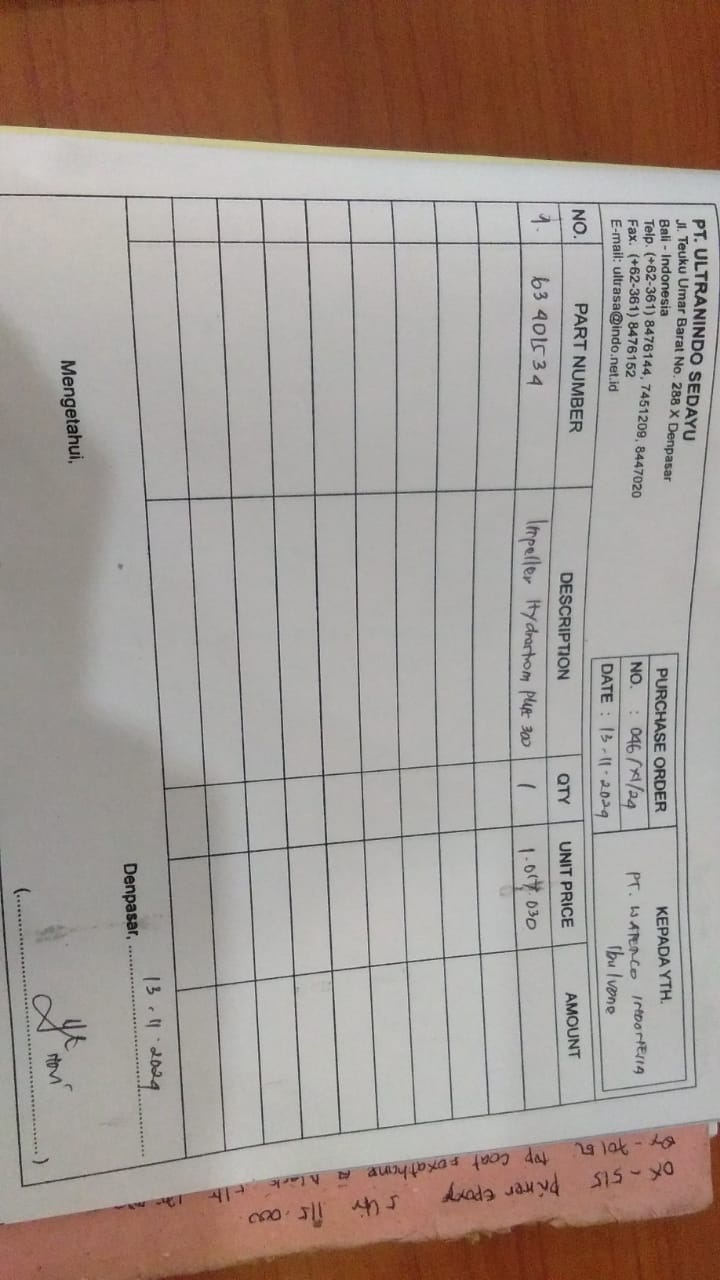 PT. ULTRANINDO SEDAYU
Jl. Teuku Umar Barat No. 288 X Denpasar
Bali - Indonesia
Telp. (+62-361) 8476144, 7451209, 8447020
Fax. (+62-361) 8476152
E-mail: ultrasa@indo.net.id
PURCHASE ORDER
NO. : 046/XI/24
DATE : 13-11-2024
KEPADA YTH.
PT. WATERCO INDONESIA
Ibu Ivone
NO. PART NUMBER DESCRIPTION QTY UNIT PRICE AMOUNT
1. 63401534 Impeller Hydrostorm plus 300 1 1.017.030
Denpasar, 13-11-2024
Mengetahui,
(..............................)
OX-515 primer epoxy 5 ltr 115.000
top coat black